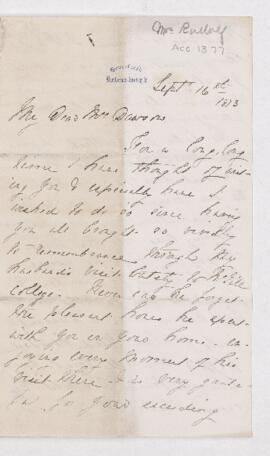 Mrs
Acc 1377
Sept 16th
1873
My Dear Mrs Dawson
For a long, long
time I have thought of writ-
ing you & especially have I
wished to do so since having
you all brought so vividly
to remembrance through my
husband's visit lately to McGill
College. Never can he forget
the pleasant hours he spent
with you in your home - en-
joying every moment of his
visit there & is very grate-
ful for your exceeding